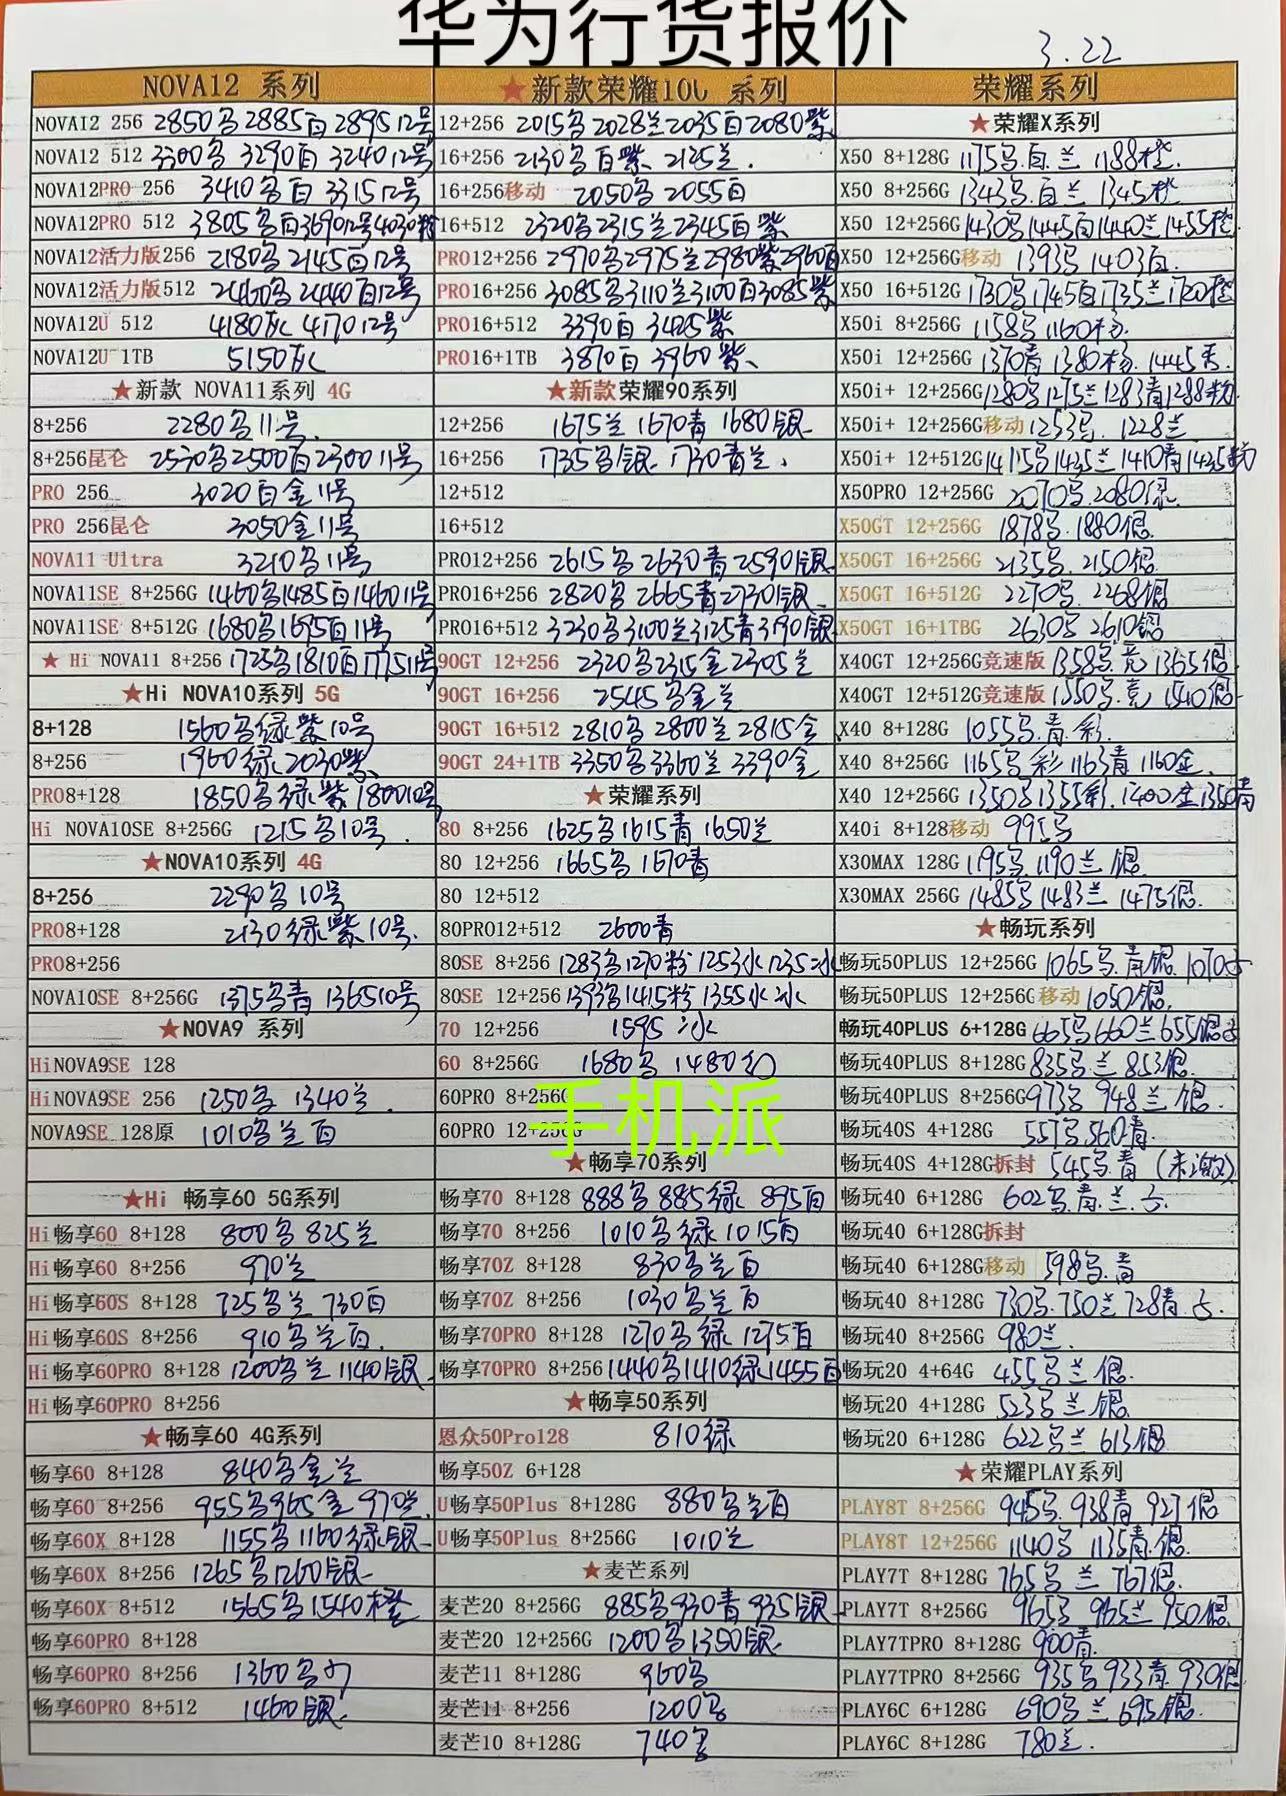 华为行货报价
3.22
NOVA12 系列
NOVA12 256 2850 2885白 2895 12号
NOVA12 512 3300 3290白 3240 12号
NOVA12PRO 256 3410 白 3315 12号
NOVA12PRO 512 3805 白3690 12号4030粉
NOVA12活力版256 2180 2145白12号
NOVA12活力版512 2460 2440白12号
NOVA12U 512 4180灰 4170 12号
NOVA12U 1TB 5150灰
★新款 NOVA11系列 4G
8+256 2280 11号
8+256昆仑 2530 2500白2300 11号
PRO 256 3020白金11号
PRO 256昆仑 3050金11号
NOVA11 Ultra 3210 11号
NOVA11SE 8+256G 1460 1485白1460 11号
NOVA11SE 8+512G 1680 1695白11号
★Hi NOVA11 8+256 1725 1810白1775 11号
★Hi NOVA10系列 5G
8+128 1560 绿紫10号
8+256 1960绿2030紫
PRO8+128 1850 绿紫1800 10号
Hi NOVA10SE 8+256G 1215 10号
★NOVA10系列 4G
8+256 2290 10号
PRO8+128 2130绿紫10号
PRO8+256
NOVA10SE 8+256G 1375 青1365 10号
★NOVA9 系列
HiNOVA9SE 128
HiNOVA9SE 256 1250 1340兰
NOVA9SE 128原 1010 兰白
★Hi 畅享60 5G系列
Hi畅享60 8+128 800 825兰
Hi畅享60 8+256 970兰
Hi畅享60S 8+128 725 兰 730白
Hi畅享60S 8+256 910 兰白
Hi畅享60PRO 8+128 1200 兰1140银
Hi畅享60PRO 8+256
★畅享60 4G系列
畅享60 8+128 840 金兰
畅享60 8+256 955 965金970兰
畅享60X 8+128 1155 1160绿银
畅享60X 8+256 1265 1260银
畅享60X 8+512 1565 1540橙
畅享60PRO 8+128
畅享60PRO 8+256 1360
畅享60PRO 8+512 1460银
★新款荣耀100 系列
12+256 2015 2028兰2035白2080紫
16+256 2130 白紫 2125兰
16+256移动 2050 2055白
16+512 2320 2315兰2345白紫
PRO12+256 2970 2975兰2980紫2960白
PRO16+256 3085 3110兰3100白3085紫
PRO16+512 3390白 3425紫
PRO16+1TB 3870白 3960紫
★新款荣耀90系列
12+256 1675兰 1670青 1680银
16+256 1735 银 1730青兰
12+512
16+512
PRO12+256 2615 2630青2590银
PRO16+256 2820 2665青2730银
PRO16+512 3230 3100兰3125青3190银
90GT 12+256 2320 2315金2305兰
90GT 16+256 2545 金兰
90GT 16+512 2810 2800兰2815金
90GT 24+1TB 3350 3360兰3390金
★荣耀系列
80 8+256 1625 1615青1650兰
80 12+256 1665 1670青
80 12+512
80PRO12+512 2600青
80SE 8+256 1283 1270粉1253水1235冰
80SE 12+256 1393 1415粉1355水冰
70 12+256 1595 冰
60 8+256G 1680 1480幻
60PRO 8+256G
手机派
60PRO 12+256G
★畅享70系列
畅享70 8+128 888 885绿 895白
畅享70 8+256 1010 绿1015白
畅享70Z 8+128 830 兰白
畅享70Z 8+256 1030 兰白
畅享70PRO 8+128 1270 绿1275白
畅享70PRO 8+256 1440 1410绿1455白
★畅享50系列
恩众50Pro128 810绿
畅享50Z 6+128
U畅享50Plus 8+128G 880 兰白
U畅享50Plus 8+256G 1010兰
★麦芒系列
麦芒20 8+256G 885 930青935银
麦芒20 12+256G 1200 1350银
麦芒11 8+128G 960
麦芒11 8+256 1200
麦芒10 8+128G 740
荣耀系列
★荣耀X系列
X50 8+128G 1175 白兰 1188橙
X50 8+256G 1343 白兰 1345橙
X50 12+256G 1430 1445白1440兰1455橙
X50 12+256G移动 1393 1403白
X50 16+512G 1730 1745白1735兰 橙
X50i 8+256G 1158 1160粉
X50i 12+256G 1370青1380粉 1445
X50i+ 12+256G 1280 1275兰1283青1288粉
X50i+ 12+256G移动 1253 1228兰
X50i+ 12+512G 1415 1435兰1410青1435粉
X50PRO 12+256G 2070 2080绿
X50GT 12+256G 1878 1880银
X50GT 16+256G 2135 2150银
X50GT 16+512G 2270 2268银
X50GT 16+1TBG 2630 2610银
X40GT 12+256G竞速版 1358 竞 1365银
X40GT 12+512G竞速版 1550 竞 1540银
X40 8+128G 1055 青彩
X40 8+256G 1165 彩1163青1160金
X40 12+256G 1350 1355彩1400金1350青
X40i 8+128移动 995
X30MAX 128G 1195 1190兰 银
X30MAX 256G 1485 1483兰 1475银
★畅玩系列
畅玩50PLUS 12+256G 1065 青银 1070
畅玩50PLUS 12+256G移动 1050银
畅玩40PLUS 6+128G 665 660兰655银
畅玩40PLUS 8+128G 835 兰 853银
畅玩40PLUS 8+256G 973 948兰 银
畅玩40S 4+128G 557 560青
畅玩40S 4+128G拆封 545 青(未激)
畅玩40 6+128G 602 青兰
畅玩40 6+128G拆封
畅玩40 6+128G移动 598 青
畅玩40 8+128G 730 750兰728青
畅玩40 8+256G 980兰
畅玩20 4+64G 455 兰 银
畅玩20 4+128G 523 兰 银
畅玩20 6+128G 622 兰 613银
★荣耀PLAY系列
PLAY8T 8+256G 945 938青 927银
PLAY8T 12+256G 1140 1135青银
PLAY7T 8+128G 765 兰 767银
PLAY7T 8+256G 965 965兰 950银
PLAY7TPRO 8+128G 900青
PLAY7TPRO 8+256G 935 933青930银
PLAY6C 6+128G 690 兰 695银
PLAY6C 8+128G 780兰